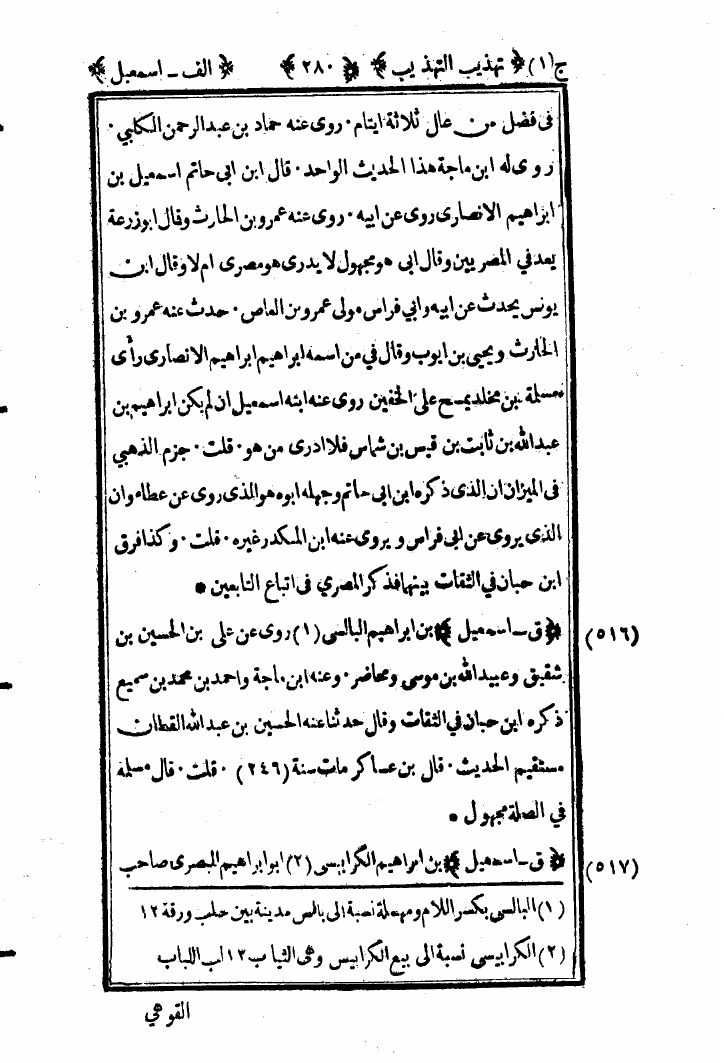 ج(١) ﴿ تهذيب التهذيب ﴾ ﴿ ٢٨٠ ﴾ ﴿ الف ـ اسمعيل ﴾
فى فضل من عال ثلاثة ايتام ٠ روى عنه حماد بن عبد الرحمن الكلبي ٠
روى له ابن ماجة هذا الحديث الواحد ٠ قال ابن ابى حاتم اسمعيل بن
ابراهيم الانصارى روى عن ابيه ٠ روى عنه عمرو بن الحارث وقال ابو زرعة
يعد في المصريين وقال ابى هو مجهول لا يدرى هو مصرى ام لا وقال ابن
يونس يحدث عن ابيه وابي فراس مولى عمرو بن العاص ٠ حدث عنه عمرو بن
الحارث ويحيى بن ايوب وقال في من اسمه ابراهيم ابراهيم الانصارى رأى
مسلمة بن مخلد يمسح على الخفين روى عنه ابنه اسمعيل ان لم يكن ابراهيم بن
عبد الله بن ثابت بن قيس بن شماس فلا ادرى من هو ٠ قلت ٠ جزم الذهبي
فى الميزان ان الذى ذكره ابن ابى حاتم وجهله ابوه هو الذى روى عن عطاء وان
الذى يروى عن ابى فراس ويروى عنه ابن المنكدر غيره ٠ قلت ٠ وكذا فرق
ابن حبان في الثقات بينهما فذكر المصري فى اتباع التابعين *
(٥١٦) ﴿ ق ـ اسمعيل ﴾ بن ابراهيم البالسى (١) روى عن على بن الحسين بن
شقيق وعبيد الله بن موسى ومحاضر ٠ وعنه ابن ماجة واحمد بن محمد بن سميع
ذكره ابن حبان في الثقات وقال حدثنا عنه الحسين بن عبد الله القطان
مستقيم الحديث ٠ قال بن عساكر مات سنة (٢٤٦) ٠ قلت ٠ قال مسلمة
في الصلة مجهول *
(٥١٧) ﴿ ق ـ اسمعيل ﴾ بن ابراهيم الكرابيسى (٢) ابو ابراهيم البصرى صاحب
(١) البالسى بكسر اللام ومهملة نسبة الى بالس مدينة بين حلب ورقة ١٢
(٢) الكرابيسى نسبة الى بيع الكرابيس وهى الثياب ١٢ لب اللباب
القوهي